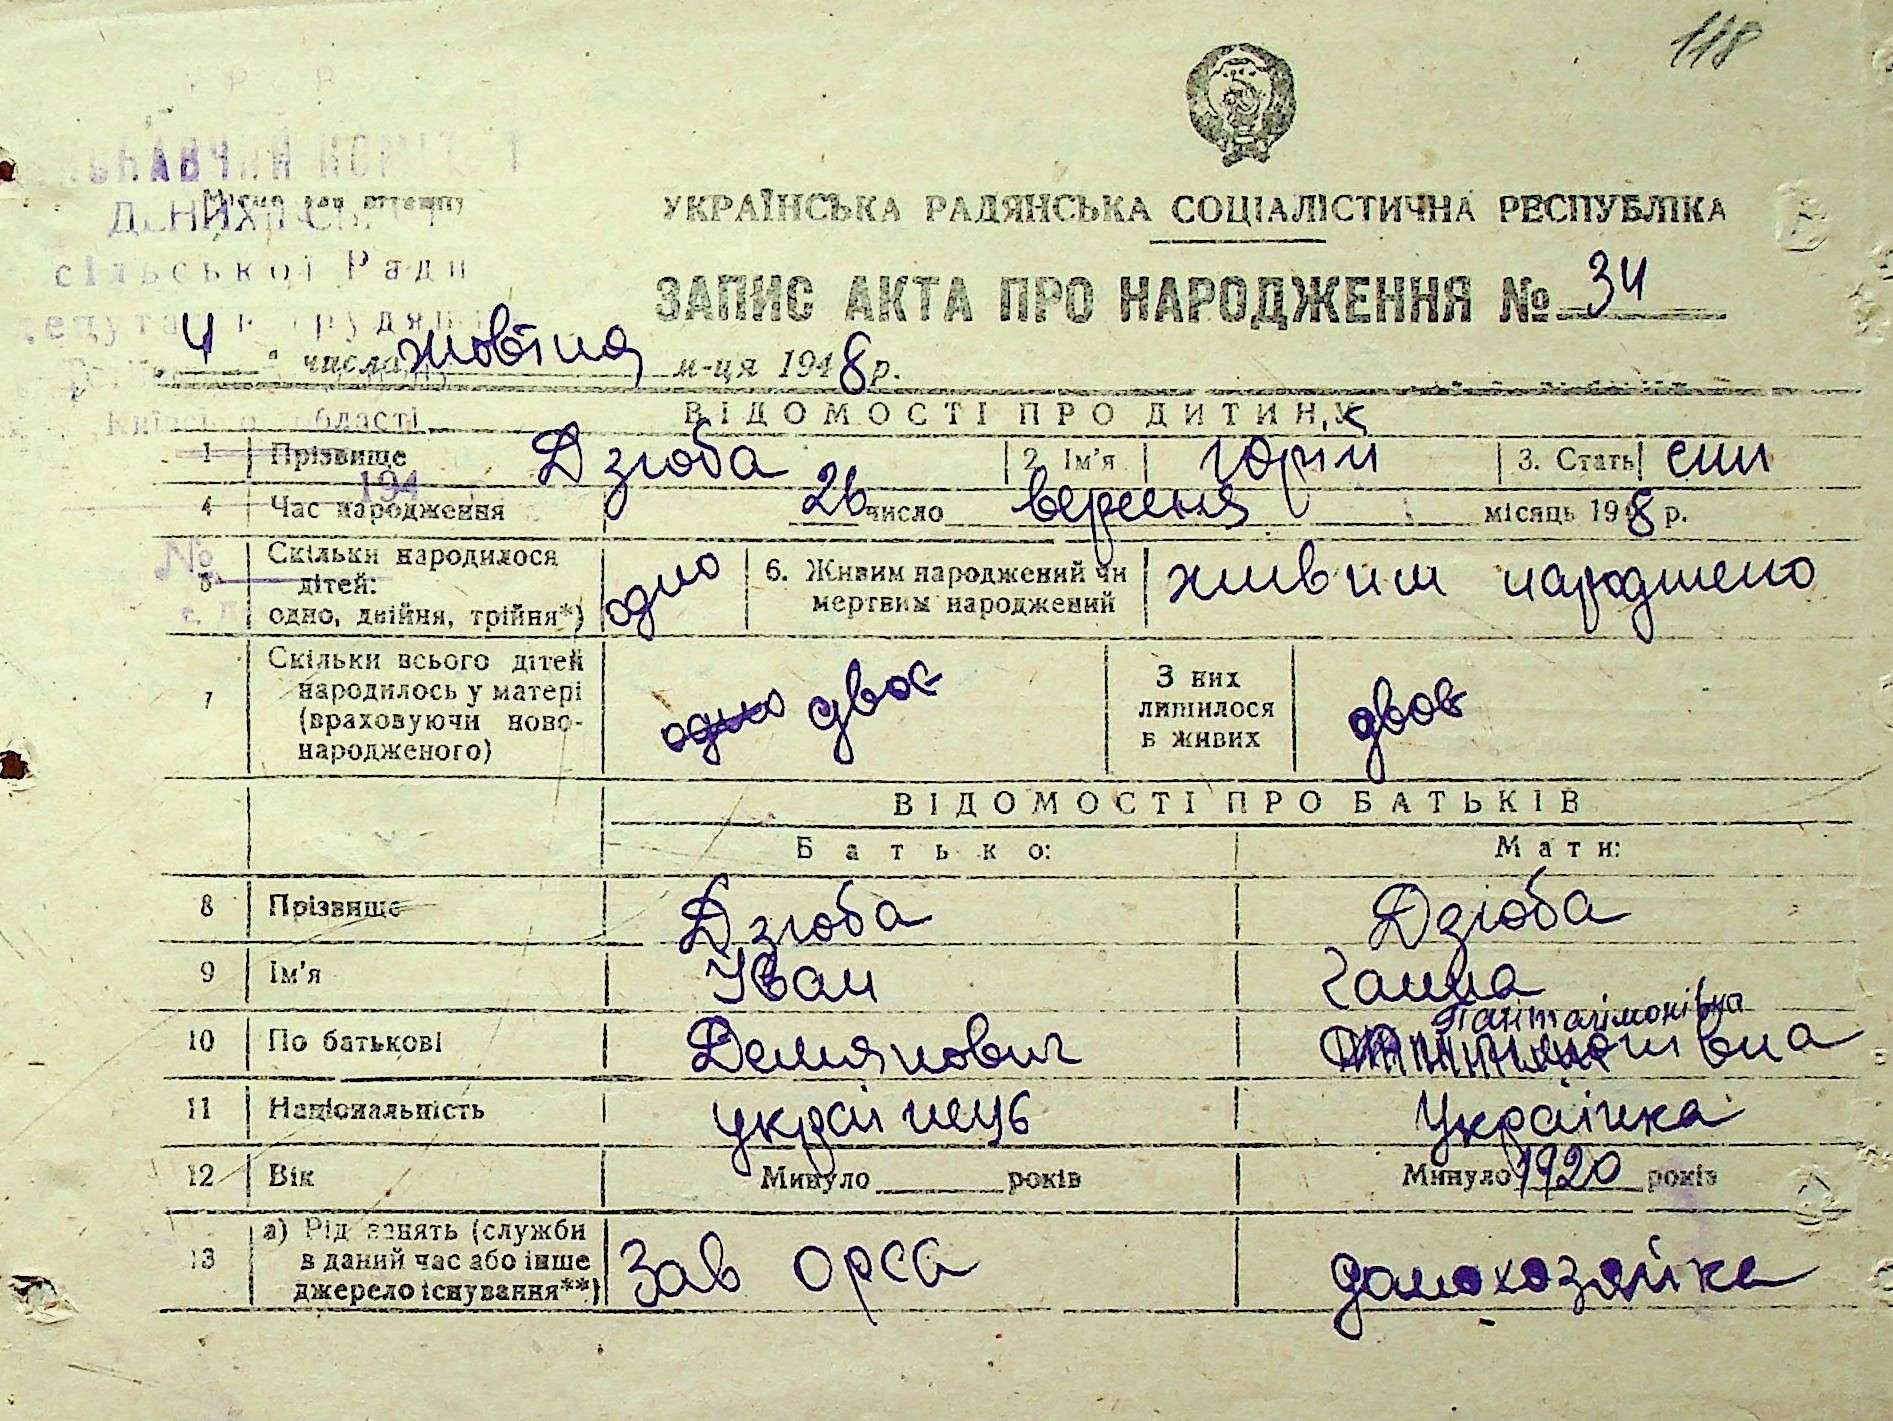 118
УКРАЇНСЬКА РАДЯНСЬКА СОЦІАЛІСТИЧНА РЕСПУБЛІКА
Місце для штампу
сільської Ради
ЗАПИС АКТА ПРО НАРОДЖЕННЯ № 34
4 " числа жовтня м-ця 1948 р.
області
ВІДОМОСТІ ПРО ДИТИНУ
1 Прізвище Дзюба 2. Ім'я Юрій 3. Стать син
194
4 Час народження 26 число вересня місяць 1948 р.
№
5 Скільки народилося дітей: одно, двійня, трійня*) одно 6. Живим народжений чи мертвим народжений живим народжено
7 Скільки всього дітей народилось у матері (враховуючи ново-народженого) одно двоє З них лишилося в живих двоє
ВІДОМОСТІ ПРО БАТЬКІВ
Батько: Мати:
8 Прізвище Дзюба Дзюба
9 Ім'я Іван Ганна
Пантелімонівна
10 По батькові Демянович
11 Національність українець Українка
12 Вік Минуло років Минуло 1920 років
13 а) Рід занять (служби в даний час або інше джерело існування**) Зав орса домохозяйка